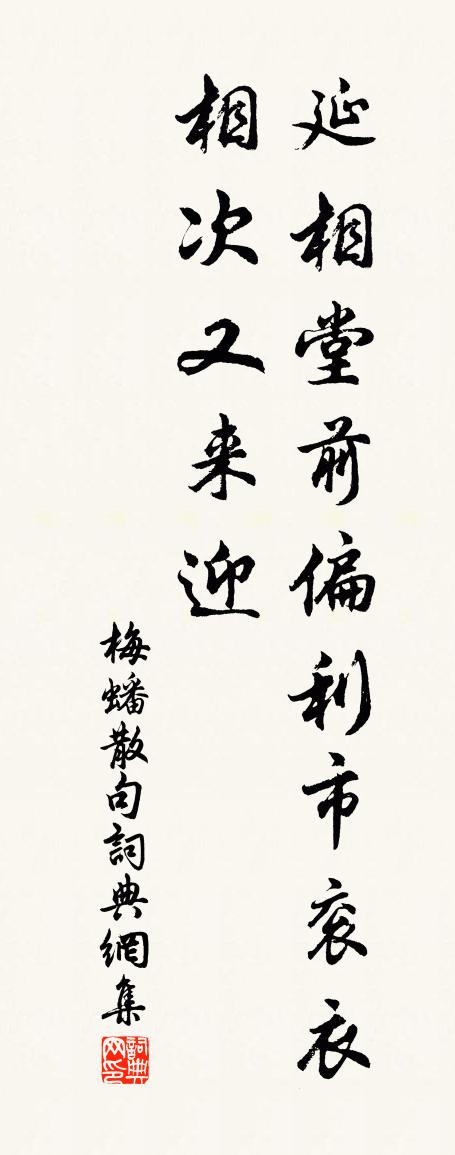 延相堂前偏利市衮衣
相次又来迎
梅蟠散句詞典網集
詞典网印